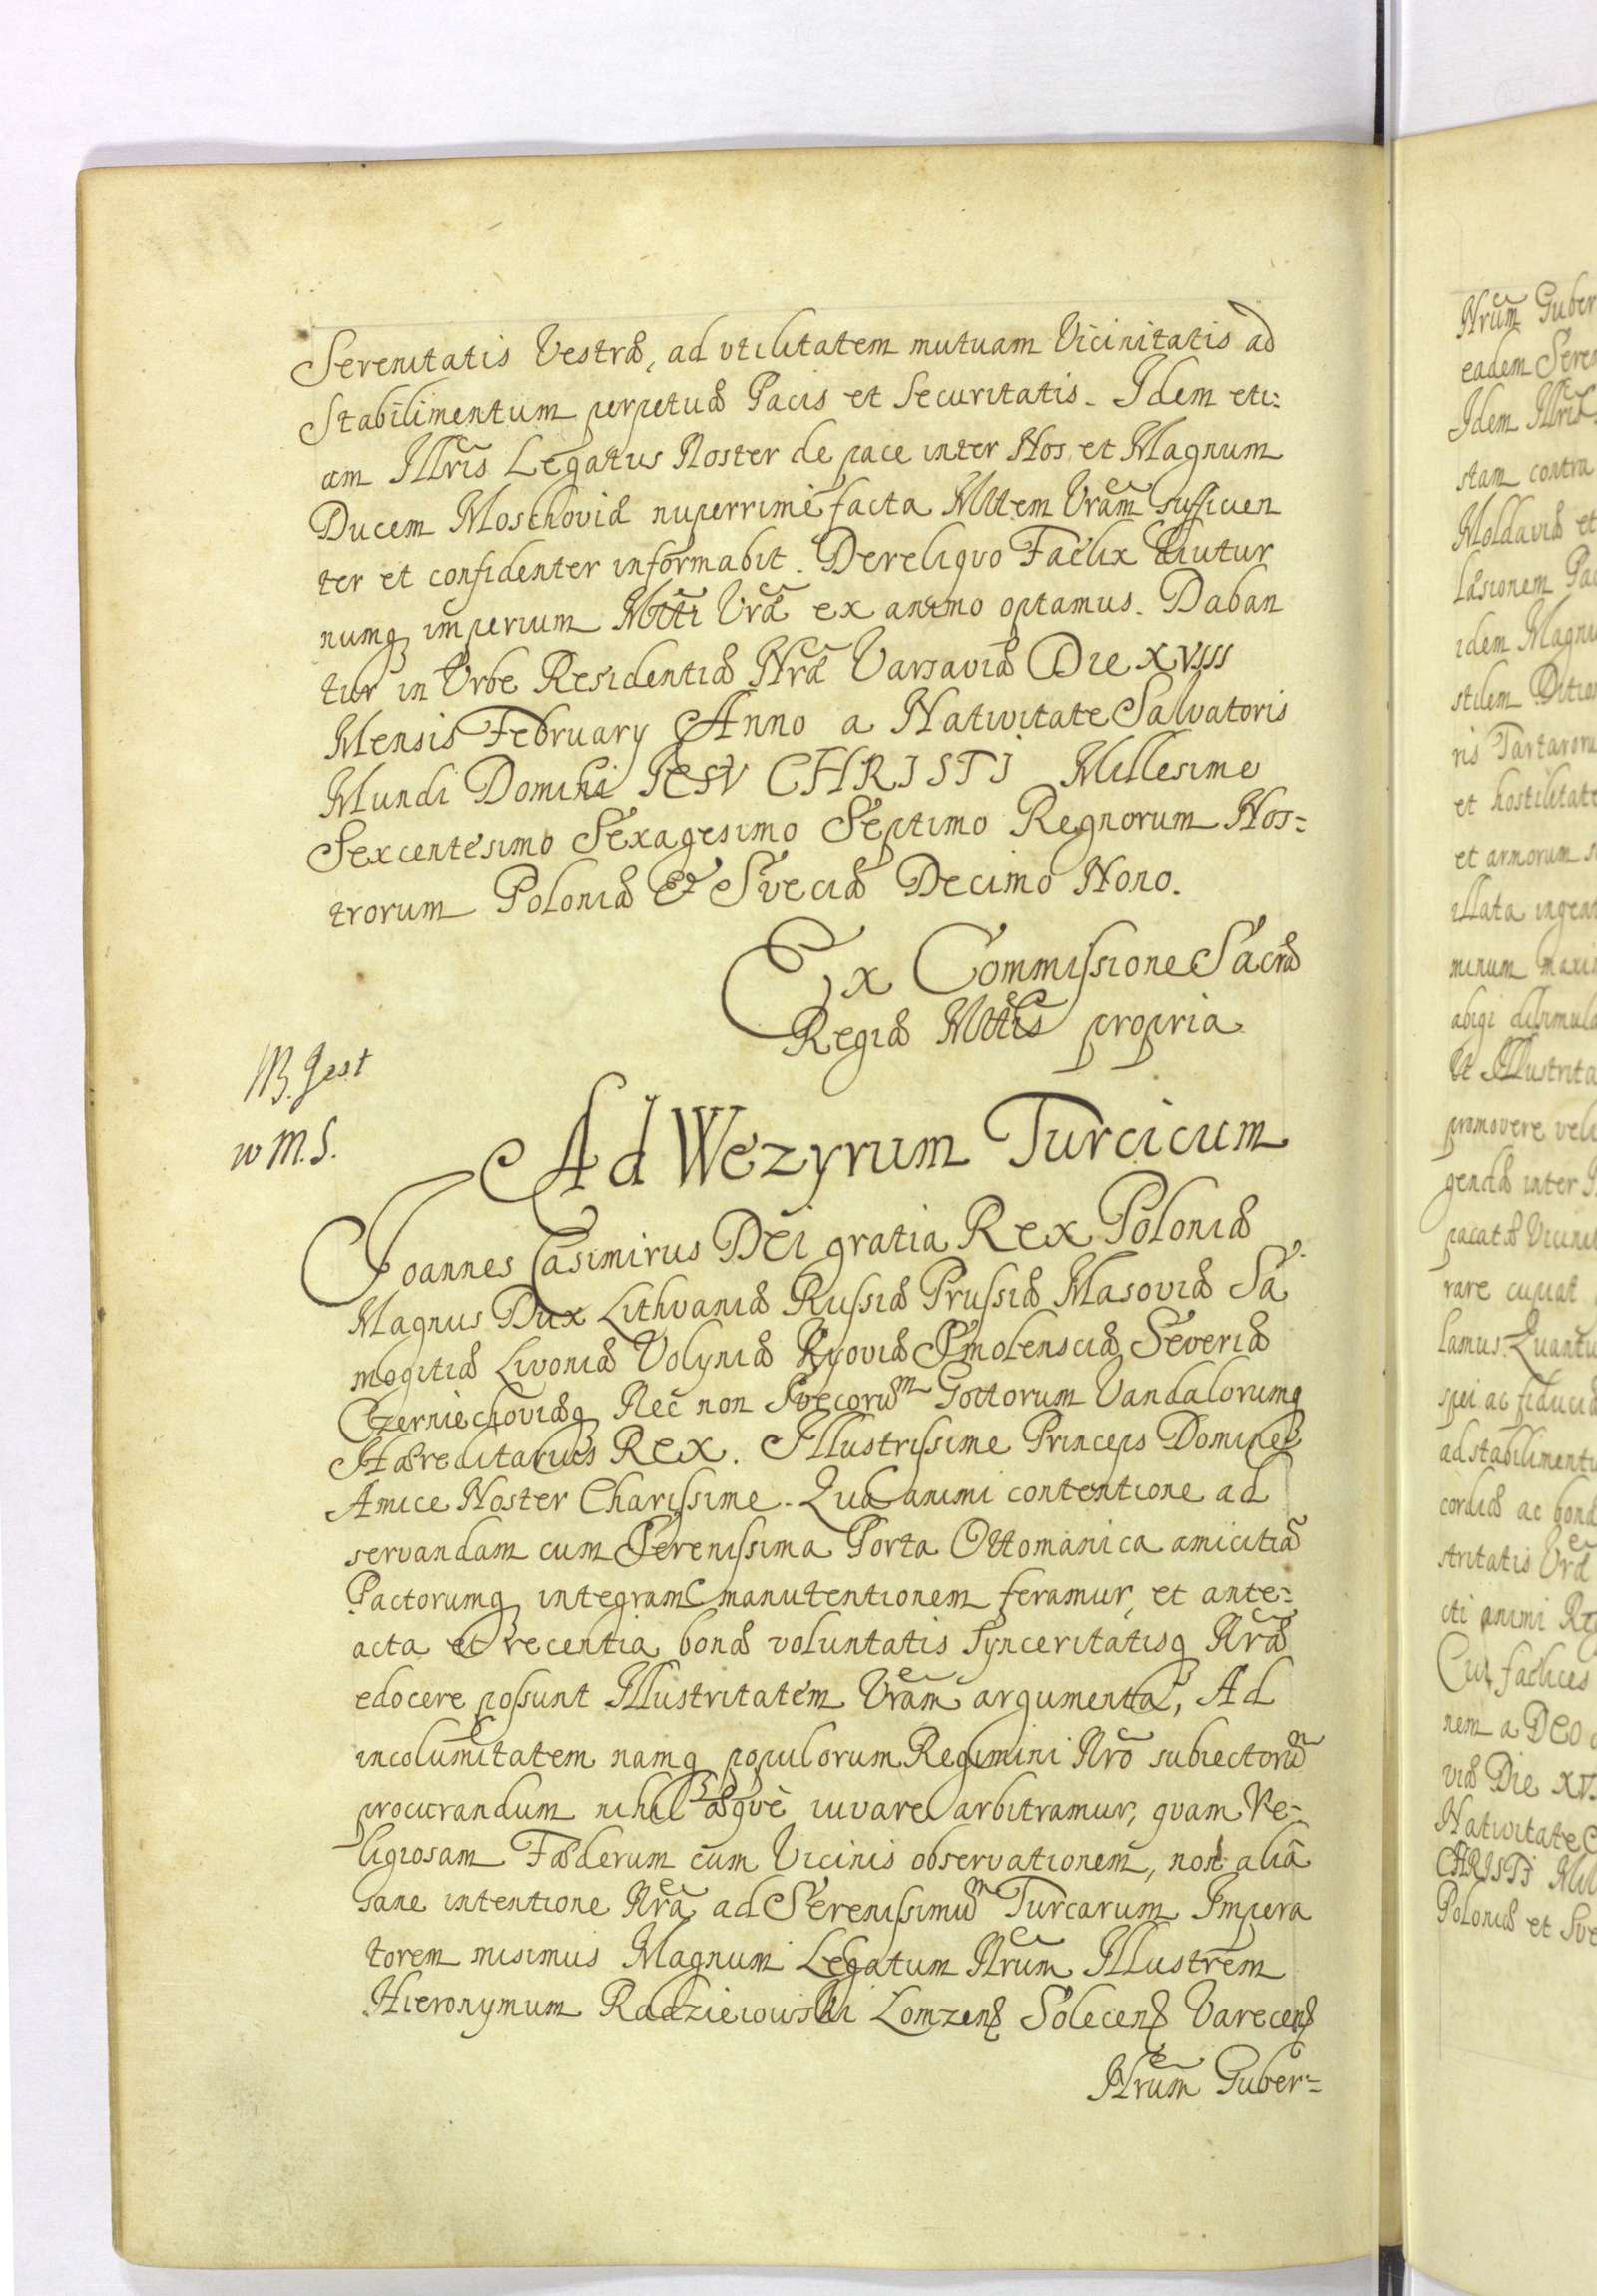 Serenitatis Vestræ, ad vtilitatem mutuam Vicinitatis ad
Stabilimentum perpetuæ Pacis et Securitatis. Idem eti=
am Illris Legatus Noster de pace inter Nos et Magnum
Ducem Moschoviæ nuperrimè facta Mttem Vram sufficien
ter et confidenter informabit. De reliquo Faelix Diutur
numq imperium Mtti Vræ ex animo optamus. Daban
tur in Vrbe Residentiæ Nræ Varsaviæ Die XVIII
Mensis February Anno a Nativitate Salvatoris
Mundi Domini IESV CHRISTI Millesimo
Sexcentesimo Sexagesimo Septimo Regnorum Nos=
trorum Poloniæ Et Sveciæ Decimo Nono.
Ex Commissione Sacræ
Regiæ Mttis propria
NB. Jest
w M.S.
Ad Wezyrum Turcicum
Joannes Casimirus Dei gratia Rex Poloniæ
Magnus Dux Lithvaniæ Russiæ Prussiæ Masoviæ Sa
mogitiæ Livoniæ Volyniæ Kyoviæ Smolensciæ Severiæ
Czerniechoviæq Nec non Svecorum Gottorum Vandalorumq
Hæreditarius Rex. Illustrissime Princeps Domine
Amice Noster Charissime. Qua animi contentione ad
servandam cum Serenissima Porta Ottomanica amicitiã
Pactorumq integram manutentionem feramur, et ante=
acta et recentia bonæ voluntatis Synceritatisq Nræ
edocere possunt Illustritatem Vram argumenta, Ad
incolumitatem namq populorum Regimini Nro subiectorum
procurandum nihil æquè iuvare arbitramur, quam Re=
ligiosam Fæderum cum Vicinis observationem, non aliâ
sane intentione Nra ad Serenissimum Turcarum Impera
torem misimus Magnum Legatum Nrum Illustrem
Hieronymum Radzieiowski Lomzens Solecens Varecens
Nrum Guber=